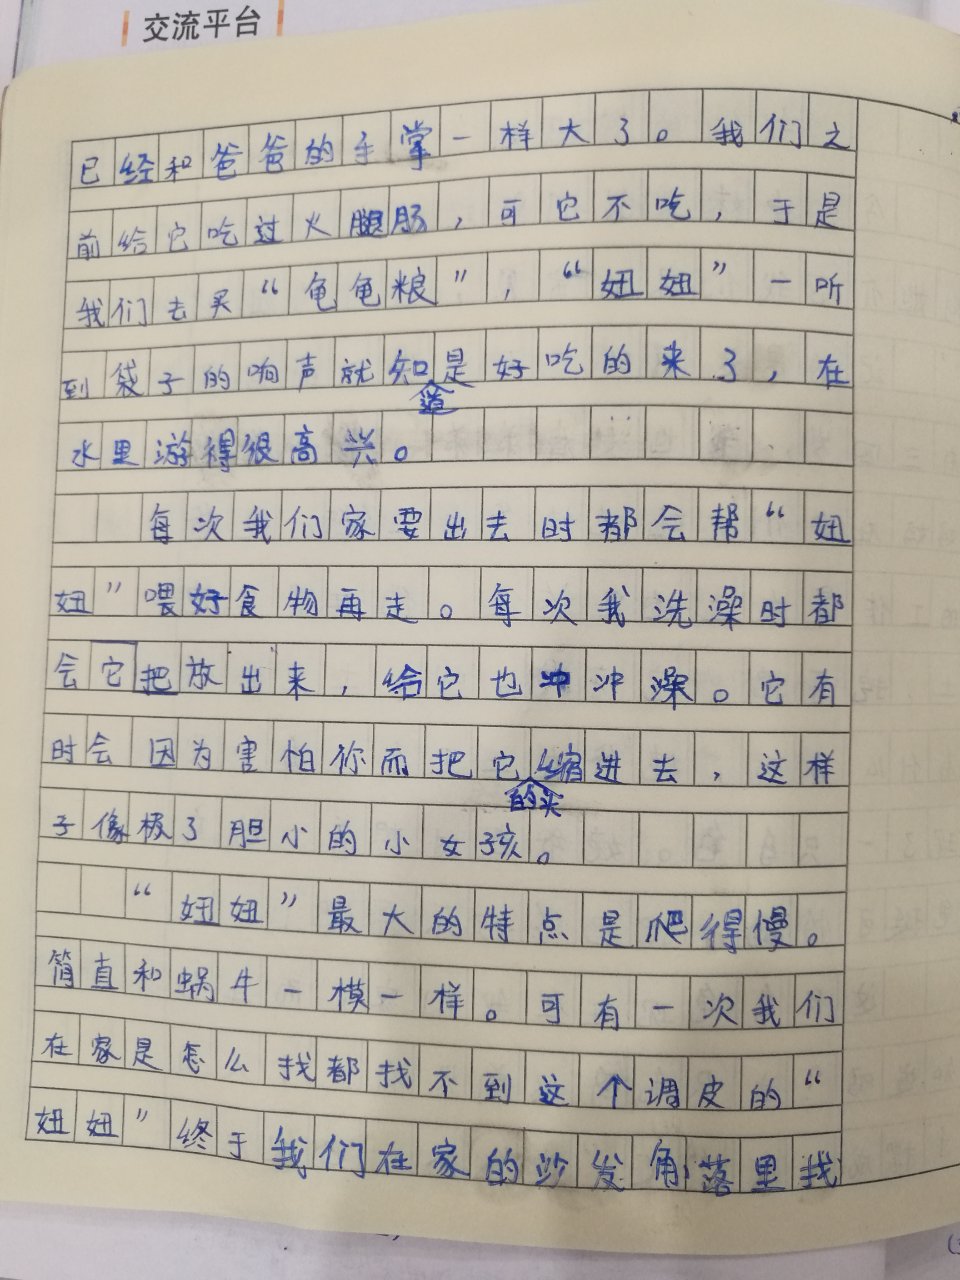 交流平台
已经和爸爸的手掌一样大了。我们之
前给它吃过火腿肠，可它不吃，于是
我们去买“龟龟粮”，“妞妞”一听
到袋子的响声就知道是好吃的来了，在
水里游得很高兴。
每次我们家要出去时都会帮“妞
妞”喂好食物再走。每次我洗澡时都
会它把放出来，给它也冲冲澡。它有
时会因为害怕你而把它的头缩进去，这样
子像极了胆小的小女孩。
“妞妞”最大的特点是爬得慢。
简直和蜗牛一模一样。可有一次我们
在家是怎么找都找不到这个调皮的“
妞妞”终于我们在家的沙发角落里找